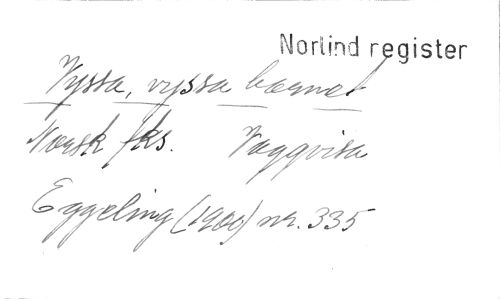 Norlind register
Vyssa, vyssa barnet
Norsk fks. Vaggvisa
Eggeling (1900) nr. 335